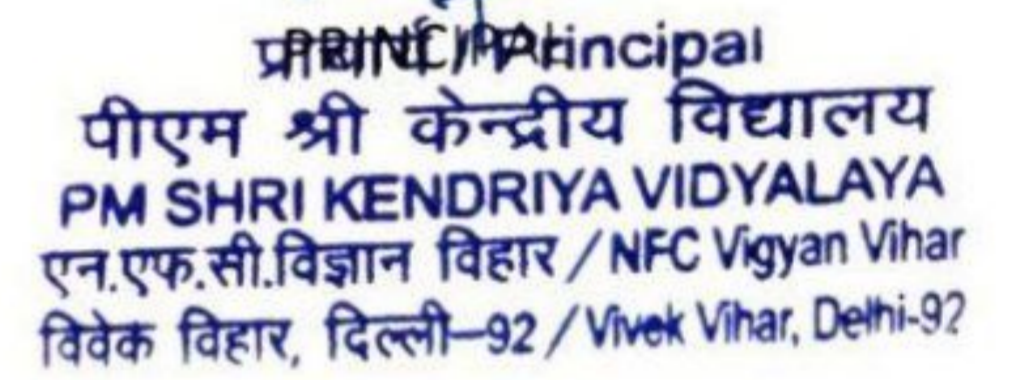 प्राचार्य / Principal
PRINCIPAL
पीएम श्री केन्द्रीय विद्यालय
PM SHRI KENDRIYA VIDYALAYA
एन.एफ.सी.विज्ञान विहार / NFC Vigyan Vihar
विवेक विहार, दिल्ली–92 / Vivek Vihar, Delhi-92